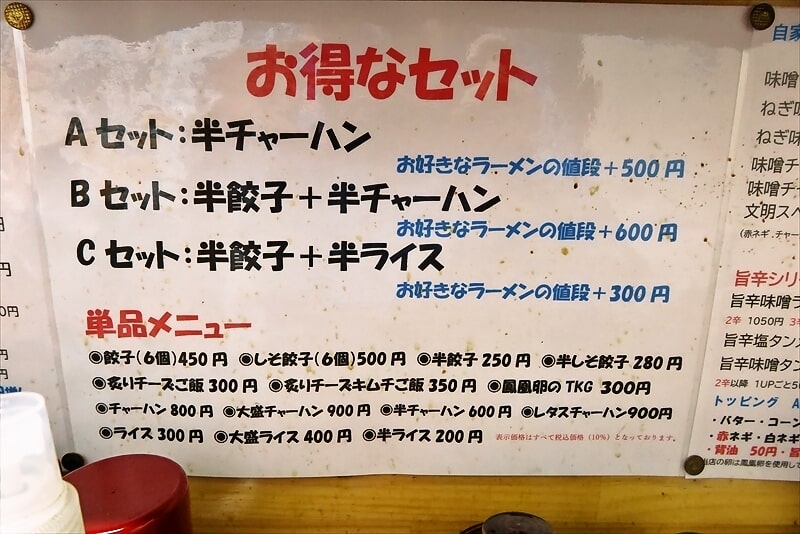 お得なセット
Aセット:半チャーハン
お好きなラーメンの値段+500円
Bセット:半餃子+半チャーハン
お好きなラーメンの値段+600円
Cセット:半餃子+半ライス
お好きなラーメンの値段+300円
単品メニュー
◉餃子(6個)450円 ◉しそ餃子(6個)500円 ◉半餃子250円 ◉半しそ餃子280円
◉炙りチーズご飯300円 ◉炙りチーズキムチご飯350円 ◉鳳凰卵のTKG 300円
◉チャーハン800円 ◉大盛チャーハン900円 ◉半チャーハン600円 ◉レタスチャーハン900円
◉ライス300円 ◉大盛ライス400円 ◉半ライス200円 表示価格はすべて税込価格(10%)となっております。
自家
味噌
ねぎ味
ねぎ味
味噌チ
味噌チ
文明スペ
(赤ネギ、チャー
旨辛シリ
旨辛味噌ラ
2辛 1050円 3
旨辛塩タンメ
旨辛味噌タン
2辛以降 1UPごと5
トッピング A
・バター・コーン
・赤ネギ・白ネギ
・背油 50円・旨
当店の卵は鳳凰卵を使用して